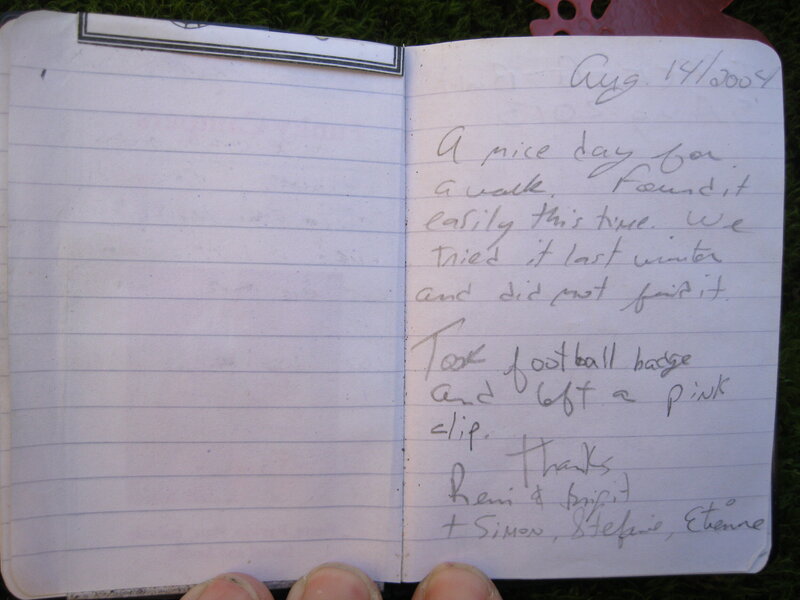 Aug 14/2004
A nice day for
a walk. Found it
easily this time. We
tried it last winter
and did not find it.
Took football badge
and left a pink
clip.
Thanks
Remi &
+ Simon, Stefanie, Etienne